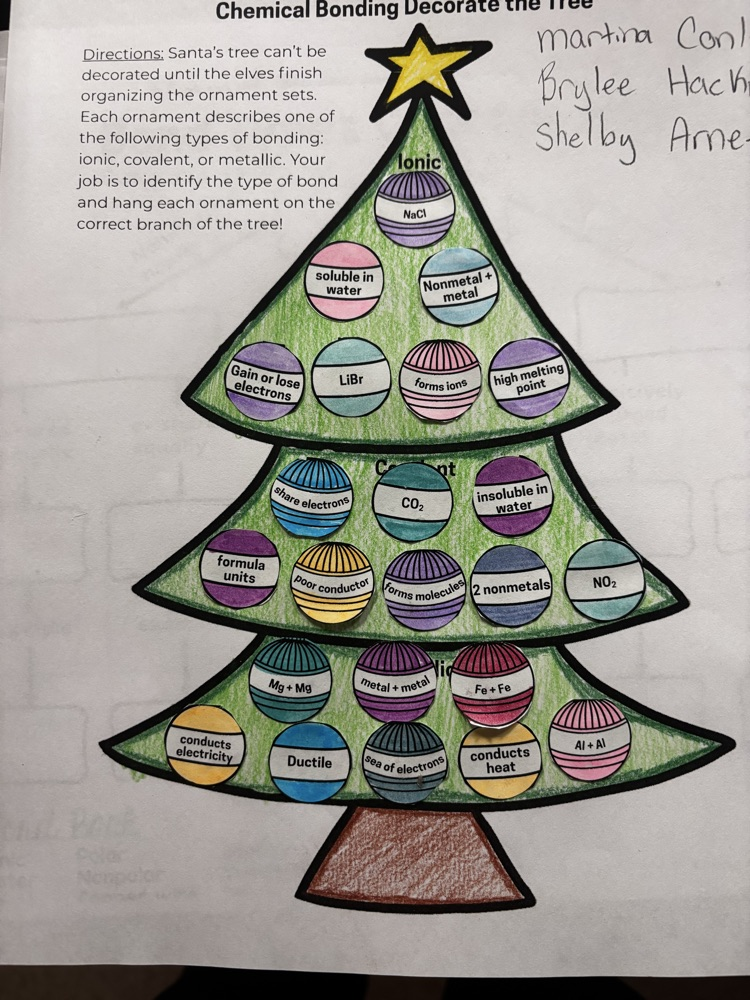 Chemical Bonding Decorate the Tree
Directions: Santa's tree can't be
decorated until the elves finish
organizing the ornament sets.
Each ornament describes one of
the following types of bonding:
ionic, covalent, or metallic. Your
job is to identify the type of bond
and hang each ornament on the
correct branch of the tree!
martina Conl
Brylee Hack
Shelby Arne
Ionic
NaCl
soluble in
water
Nonmetal +
metal
Gain or lose
electrons
LiBr
forms ions
high melting
point
share electrons
CO₂
insoluble in
water
formula
units
poor conductor
forms molecules
2 nonmetals
NO₂
Mg + Mg
metal + metal
Fe + Fe
conducts
electricity
Ductile
sea of electrons
conducts
heat
Al + Al
Polar
Nonpolar